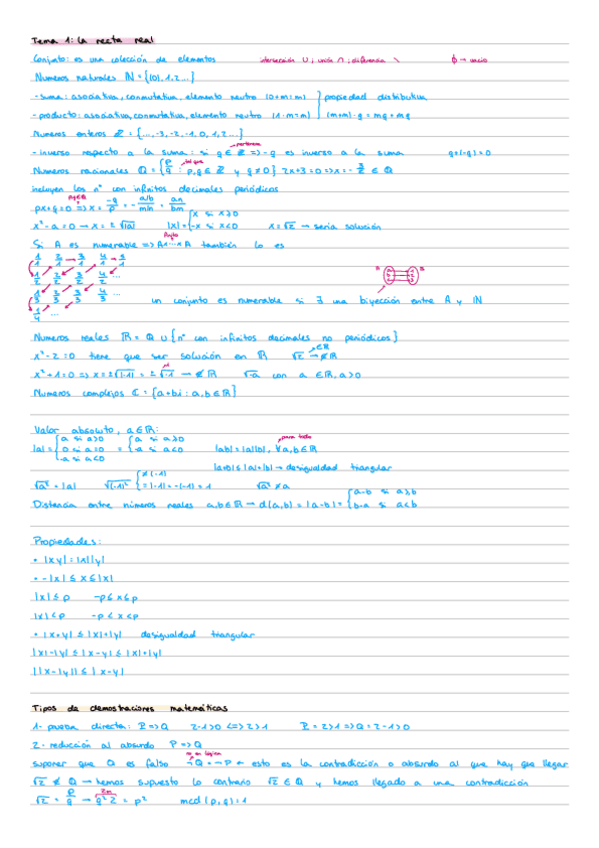 Tema 1: La recta real
Conjunto: es una colección de elementos intersección ∪; unión ∩; diferencia \ ϕ → vacío
Numeros naturales ℕ = {(0), 1, 2...}
- suma: asociativa, conmutativa, elemento neutro (0+m=m) } propiedad distributiva
- producto: asociativa, conmutativa, elemento neutro (1·m=m) (m+m)·q = mq + mq
Numeros enteros ℤ = {..., -3, -2, -1, 0, 1, 2...}
- inverso respecto a la suma: si q ∈ ℤ => -q es inverso a la suma q+(-q)=0
Numeros racionales ℚ = {p/q : p,q ∈ ℤ y q≠0} 2x+3=0 => x = -3/2 ∈ ℚ
incluyen los nº con infinitos decimales periódicos
px+q=0 => x = -q/p = - (a/b)/(m/n) = an/bm
x²-a=0 → x = ±√|a| |x| = {x si x≥0 -x si x<0 x=√2 → sería solución
Si A es numerable => A×...×A también lo es
1/1 2/1 → 3/1 4/1 → 5/1
1/2 2/2 3/2 4/2 ...
1/3 2/3 3/3 4/3 ... un conjunto es numerable si ∃ una biyección entre A y ℕ
1/4 ...
Numeros reales ℝ = ℚ ∪ {nº con infinitos decimales no periódicos}
x²-2=0 tiene que ser solución en ℝ √2 → ∈ℝ ∉ℚ
x²+1=0 => x=±√(-1) = ±√-1 → ∉ℝ √-a con a ∈ℝ, a>0
Numeros complejos ℂ = {a+bi : a,b ∈ℝ}
Valor absoluto, a∈ℝ:
|a| = {a si a>0 0 si a=0 -a si a<0 = {a si a≥0 -a si a<0 |ab|=|a||b|, ∀a,b∈ℝ para todo
|a+b|≤|a|+|b| → desigualdad triangular
√a² = |a| √(-1)² {≠(-1) =|-1|=-(-1)=1 √a² ≠ a
Distancia entre números reales a,b∈ℝ → d(a,b) = |a-b| = {a-b si a≥b b-a si a<b
Propiedades:
• |xy| = |x||y|
• -|x| ≤ x ≤ |x|
|x| ≤ p -p≤x≤p
|x| < p -p<x<p
• |x+y| ≤ |x|+|y| desigualdad triangular
|x|-|y| ≤ |x-y| ≤ |x|+|y|
||x|-|y|| ≤ |x-y|
Tipos de demostraciones matemáticas
1- prueba directa: P=>Q 2-1>0 <=> 2>1 P=2>1 => Q=2-1>0
2- reducción al absurdo P=>Q
suponer que Q es falso ¬Q = ¬P ← esto es la contradicción o absurdo al que hay que llegar
√2 ∉ ℚ → hemos supuesto lo contrario √2 ∈ ℚ y hemos llegado a una contradicción
√2 = p/q → q²2 = p² mcd (p,q)=1